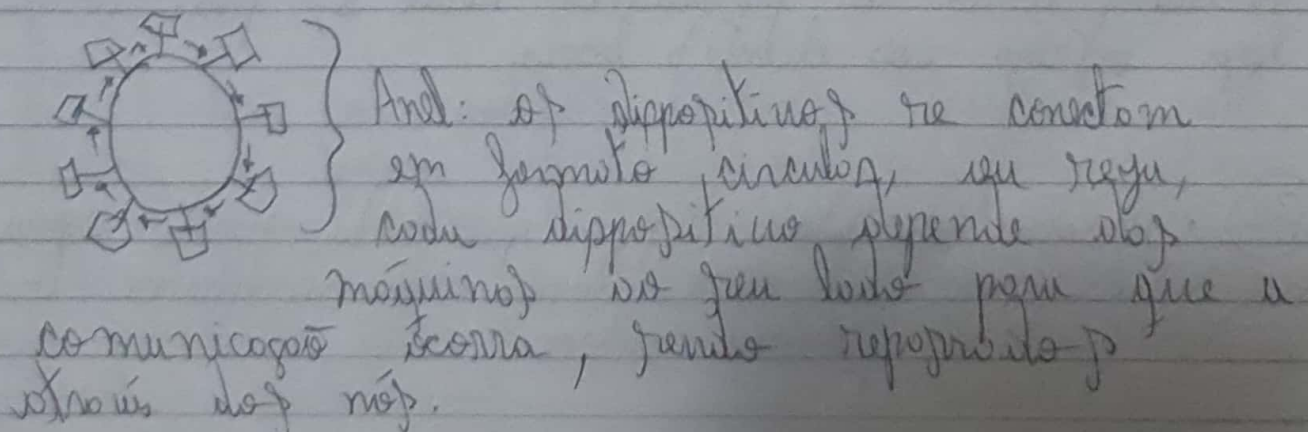 Anel: os dispositivos se conectam
em formato circular, ou seja,
cada dispositivo depende das
máquinas ao seu lado para que a
comunicação ocorra, sendo
através dos nós.